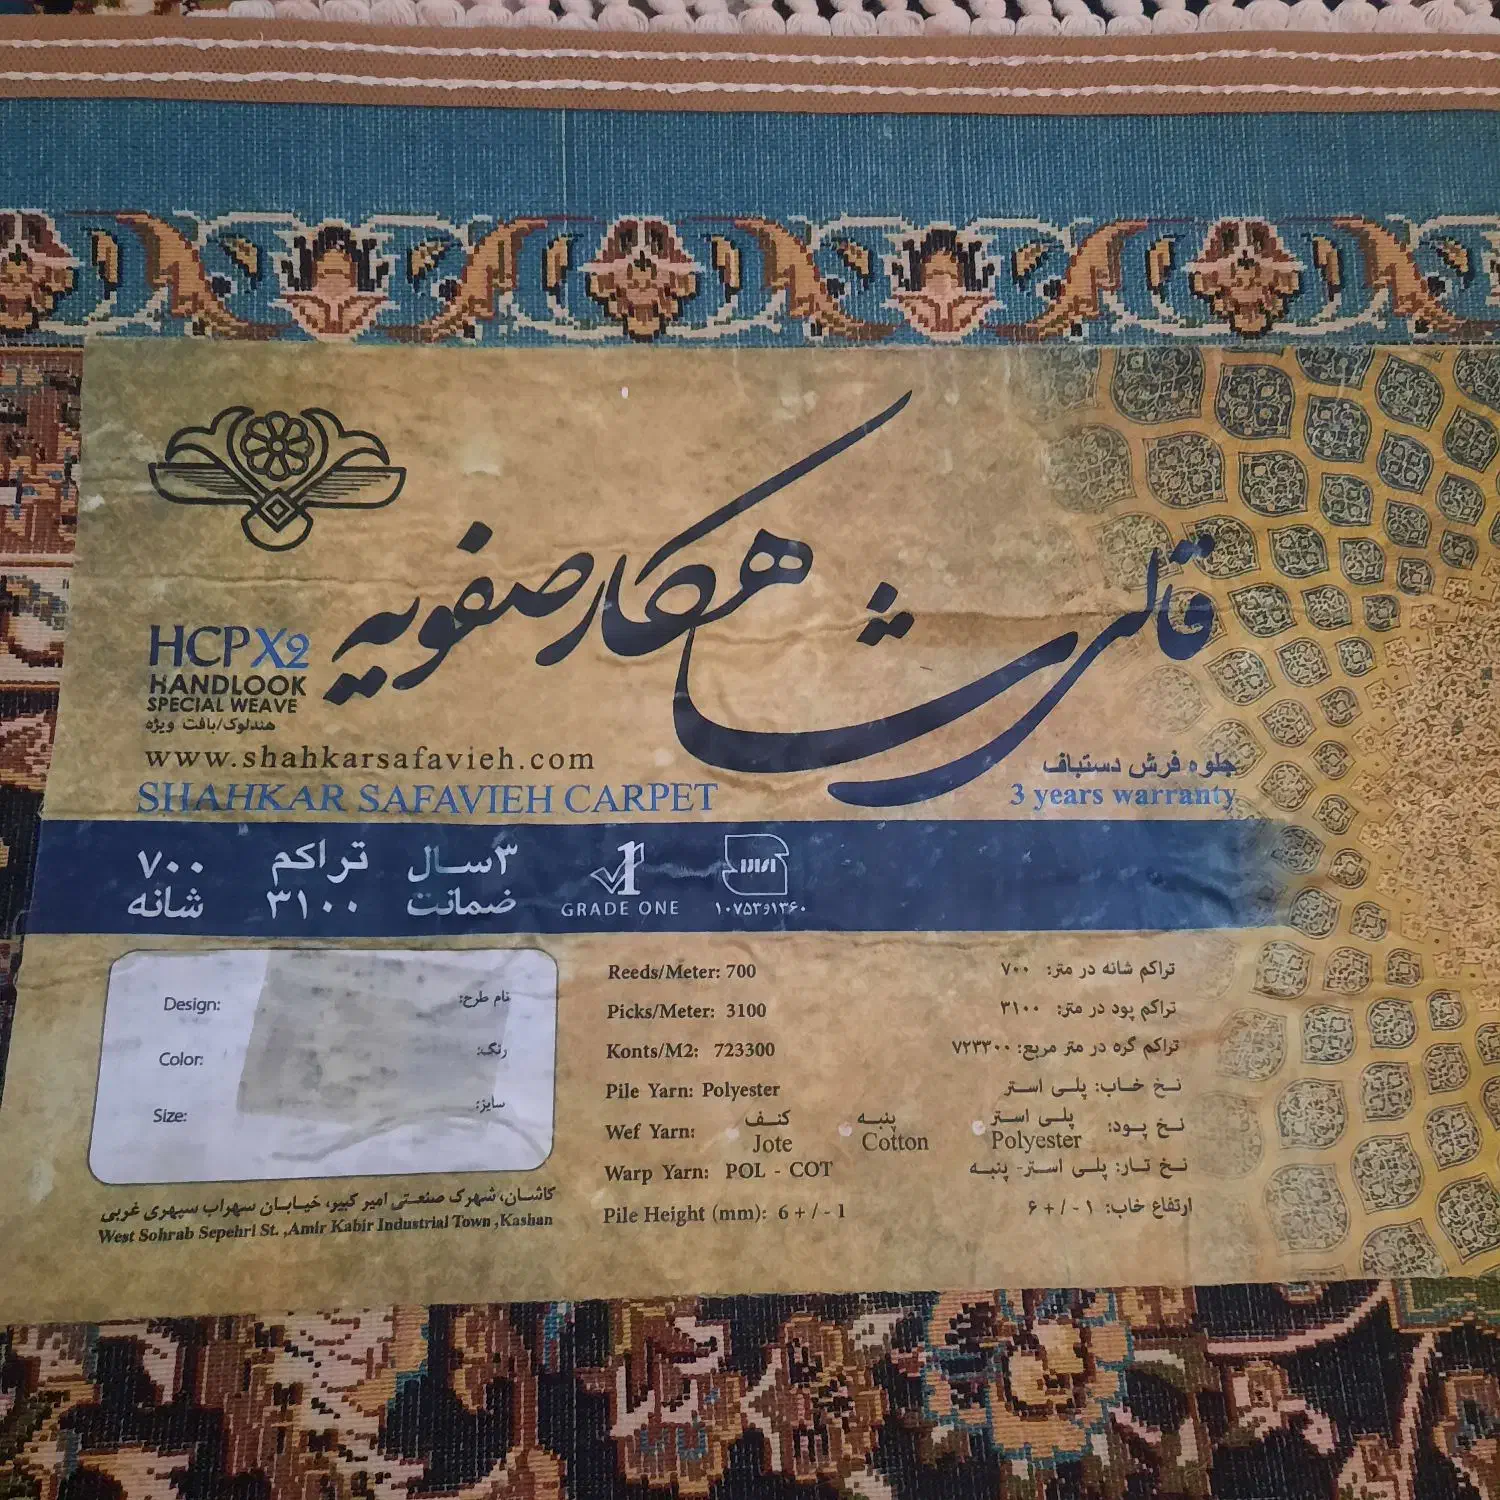 قالی شاهکار صفویه
HCPX2
HANDLOOK
SPECIAL WEAVE
هندلوک/بافت ویژه
www.shahkarsafavieh.com
SHAHKAR SAFAVIEH CARPET
جلوه فرش دستباف
3 years warranty
۷۰۰ شانه
تراکم ۳۱۰۰
۳سال ضمانت
GRADE ONE
۱۰۷۵۳و۱۳۶۰
Design: نام طرح:
Color: رنگ:
Size: سایز:
کاشان، شهرک صنعتی امیر کبیو، خیابان سهراب سپهری غربی
West Sohrab Sepehri St. ,Amir Kabir Industrial Town ,Kashan
Reeds/Meter: 700 تراکم شانه در متر: ۷۰۰
Picks/Meter: 3100 تراکم پود در متر: ۳۱۰۰
Konts/M2: 723300 تراکم گره در متر مربع: ۷۲۳۳۰۰
Pile Yarn: Polyester نخ خاب: پلی استر
Wef Yarn: کنف Jote پنبه Cotton پلی استر Polyester نخ پود:
Warp Yarn: POL - COT نخ تار: پلی استر- پنبه
Pile Height (mm): 6 + / - 1 ارتفاع خاب: ۱ - / + ۶